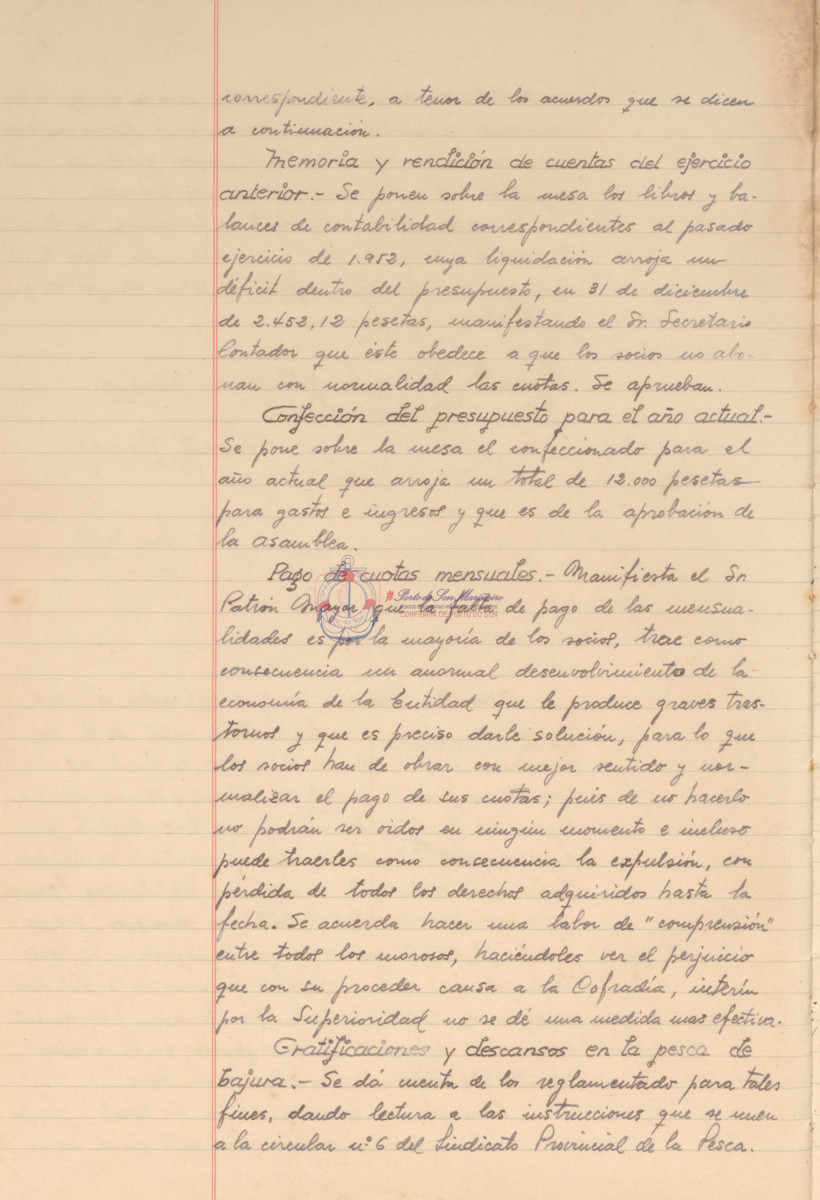 correspondiente, a tenor de los acuerdos que se dicen
a continuación.
Memoria y rendición de cuentas del ejercicio
anterior.- Se ponen sobre la mesa los libros y ba-
lances de contabilidad correspondientes al pasado
ejercicio de 1.952, cuya liquidación arroja un
déficit dentro del presupuesto, en 31 de diciembre
de 2.452,12 pesetas, manifestando el Sr. Secretario
Contador que éste obedece a que los socios no abo-
nan con normalidad las cuotas. Se aprueban.
Confección del presupuesto para el año actual.-
Se pone sobre la mesa el confeccionado para el
año actual que arroja un total de 12.000 pesetas
para gastos e ingresos y que es de la aprobación de
la asamblea.
Pago de cuotas mensuales.- Manifiesta el Sr.
Patrón Mayor que la falta de pago de las mensua-
lidades es por la mayoría de los socios, trae como
consecuencia un anormal desenvolvimiento de la
economía de la Entidad que le produce graves tras-
tornos y que es preciso darle solución, para lo que
los socios han de obrar con mejor sentido y nor-
malizar el pago de sus cuotas; pués de no hacerlo
no podrán ser oidos en ningún momento e incluso
puede traerles como consecuencia la expulsión, con
pérdida de todos los derechos adquiridos hasta la
fecha. Se acuerda hacer una labor de "comprensión"
entre todos los morosos, haciéndoles ver el perjuicio
que con su proceder causa a la Cofradía, interín
por la Superioridad no se dé una medida mas efectiva.
Gratificaciones y descansos en la pesca de
bajura.- Se dá cuenta de los reglamentado para tales
fines, dando lectura a las instrucciones que se unen
a la circular nº 6 del Sindicato Provincial de la Pesca.
Porto de Son Marinero
CONFRARÍA DE PORTO DO SON